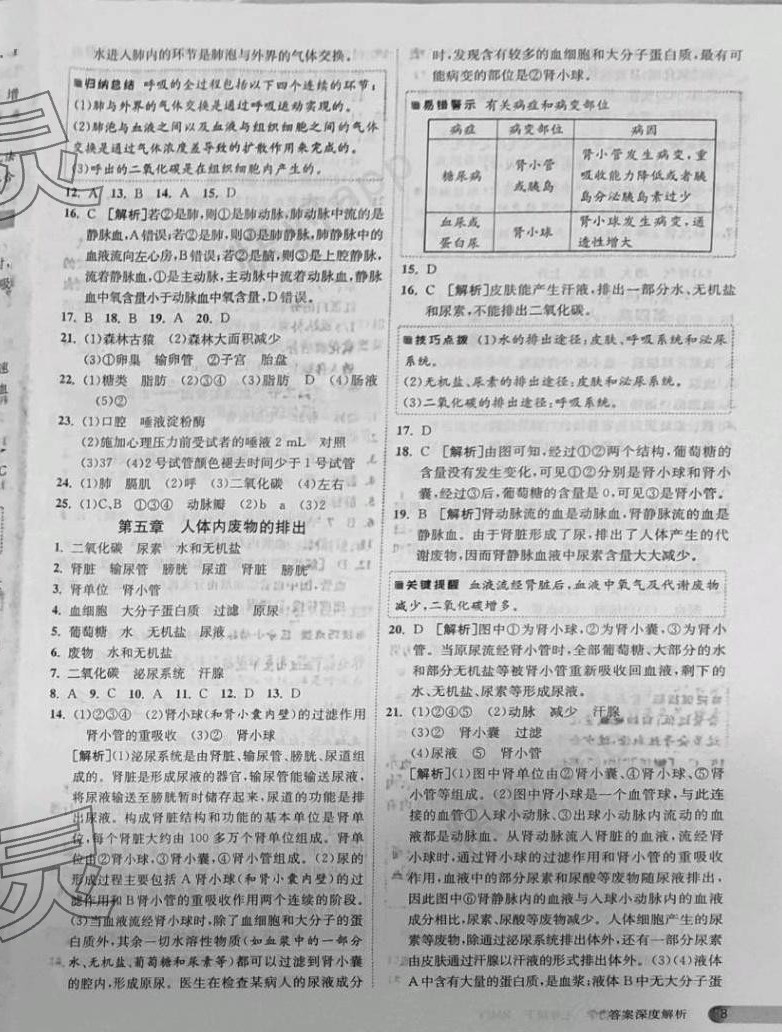 水进入肺内的环节是肺泡与外界的气体交换。
归纳总结 呼吸的全过程包括以下四个连续的环节:
(1)肺与外界的气体交换是通过呼吸运动实现的。
(2)肺泡与血液之间以及血液与组织细胞之间的气体
交换是通过气体浓度差导致的扩散作用来完成的。
(3)呼出的二氧化碳是在组织细胞内产生的。
12. A 13. B 14. A 15. D
16. C [解析]若②是肺,则①是肺动脉,肺动脉中流的是
静脉血,A错误;若②是肺,则③是肺静脉,肺静脉中
的血液流向左心房,B错误;若②是脑,则③是上腔静脉,
流着静脉血,①是主动脉,主动脉中流着动脉血,静脉
血中氧含量小于动脉血中氧含量,D错误。
17. B 18. B 19. A 20. D
21. (1)森林古猿 (2)森林大面积减少
(3)①卵巢 输卵管 ②子宫 胎盘
22. (1)糖类 脂肪 (2)③④ (3)脂肪 D (4)肠液
(5)②
23. (1)口腔 唾液淀粉酶
(2)施加心理压力前受试者的唾液2 mL 对照
(3)37 (4)2号试管颜色褪去时间少于1号试管
24. (1)肺 膈肌 (2)呼 (3)二氧化碳 (4)左右
25. (1)C、B ①③④ 动脉瓣 (2)b a (3)2
第五章 人体内废物的排出
1. 二氧化碳 尿素 水和无机盐
2. 肾脏 输尿管 膀胱 尿道 肾脏 膀胱
3. 肾单位 肾小管
4. 血细胞 大分子蛋白质 过滤 原尿
5. 葡萄糖 水 无机盐 尿液
6. 废物 水和无机盐
7. 二氧化碳 泌尿系统 汗腺
8. A 9. C 10. A 11. C 12. D 13. D
14. (1)①②③④ (2)肾小球(和肾小囊内壁)的过滤作用
肾小管的重吸收 (3)② 肾小球
[解析](1)泌尿系统是由肾脏、输尿管、膀胱、尿道组
成的。肾脏是形成尿液的器官,输尿管的功能是输尿液,
将尿液输送至膀胱暂时储存起来,尿道的功能是排出
尿液。构成肾脏结构和功能的基本单位是肾单
位,每个肾脏大约由100多万个肾单位组成。肾单
位由②肾小球、③肾小囊、④肾小管组成。(2)尿的
形成过程主要包括A肾小球(和肾小囊内壁)的过
滤作用和B肾小管的重吸收作用两个连续的阶段。
(3)当血液流经肾小球时,除了血细胞和大分子的蛋
白质外,其余一切水溶性物质(如血浆中的一部分
水、无机盐、葡萄糖和尿素等)都可以过滤到肾小囊
的腔内,形成原尿。医生在检查某病人的尿液成分
时,发现含有较多的血细胞和大分子蛋白质,最有可
能病变的部位是②肾小球。
易错警示 有关病症和病变部位
病症 病变部位 病因
糖尿病 肾小管或胰岛 肾小管发生病变,重吸收能力降低或者胰岛分泌胰岛素过少
血尿或蛋白尿 肾小球 肾小球发生病变,通透性增大
15. D
16. C [解析]皮肤能产生汗液,排出一部分水、无机盐
和尿素,不能排出二氧化碳。
技巧点拨 (1)水的排出途径:皮肤、呼吸系统和泌尿
系统。
(2)无机盐、尿素的排出途径:皮肤和泌尿系统。
(3)二氧化碳的排出途径:呼吸系统。
17. D
18. C [解析]由图可知,经过①②两个结构,葡萄糖的
含量没有发生变化,可见①②分别是肾小球和肾小
囊,经过③后,葡萄糖的含量是0,可见③是肾小管。
19. B [解析]肾动脉流的血是动脉血,肾静脉流的血是
静脉血。由于肾脏形成了尿,排出了人体产生的代
谢废物,因而肾静脉血液中尿素含量大大减少。
关键提醒 血液流经肾脏后,血液中氧气及代谢废物
减少,二氧化碳增多。
20. D [解析]图中①为肾小球,②为肾小囊,③为肾小
管。当原尿流经肾小管时,全部的葡萄糖、大部分的水
和部分无机盐等被肾小管重新吸收回血液,剩下的
水、无机盐、尿素等形成尿液。
21. (1)②④⑤ (2)动脉 减少 汗腺
(3)② 肾小囊 过滤
(4)尿液 ⑤ 肾小管
[解析](1)图中肾单位由②肾小囊、④肾小球、⑤肾
小管等组成。(2)图中肾小球是一个血管球,与此连
接的血管①入球小动脉、③出球小动脉内流动的血
液都是动脉血。从肾动脉流入肾脏的血液,流经肾
小球时,通过肾小球的过滤作用和肾小管的重吸收
作用,血液中的部分尿素和尿酸等废物随尿液排出,
因此图中⑥肾静脉内的血液与入球小动脉内的血液
成分相比,尿素、尿酸等废物减少。人体细胞产生的尿
素等废物,除通过泌尿系统排出体外,还有一部分尿素
由皮肤通过汗腺以汗液的形式排出体外。(3)(4)液体
A中含有大量的蛋白质,是血浆;液体B中无大分子蛋
答案深度解析